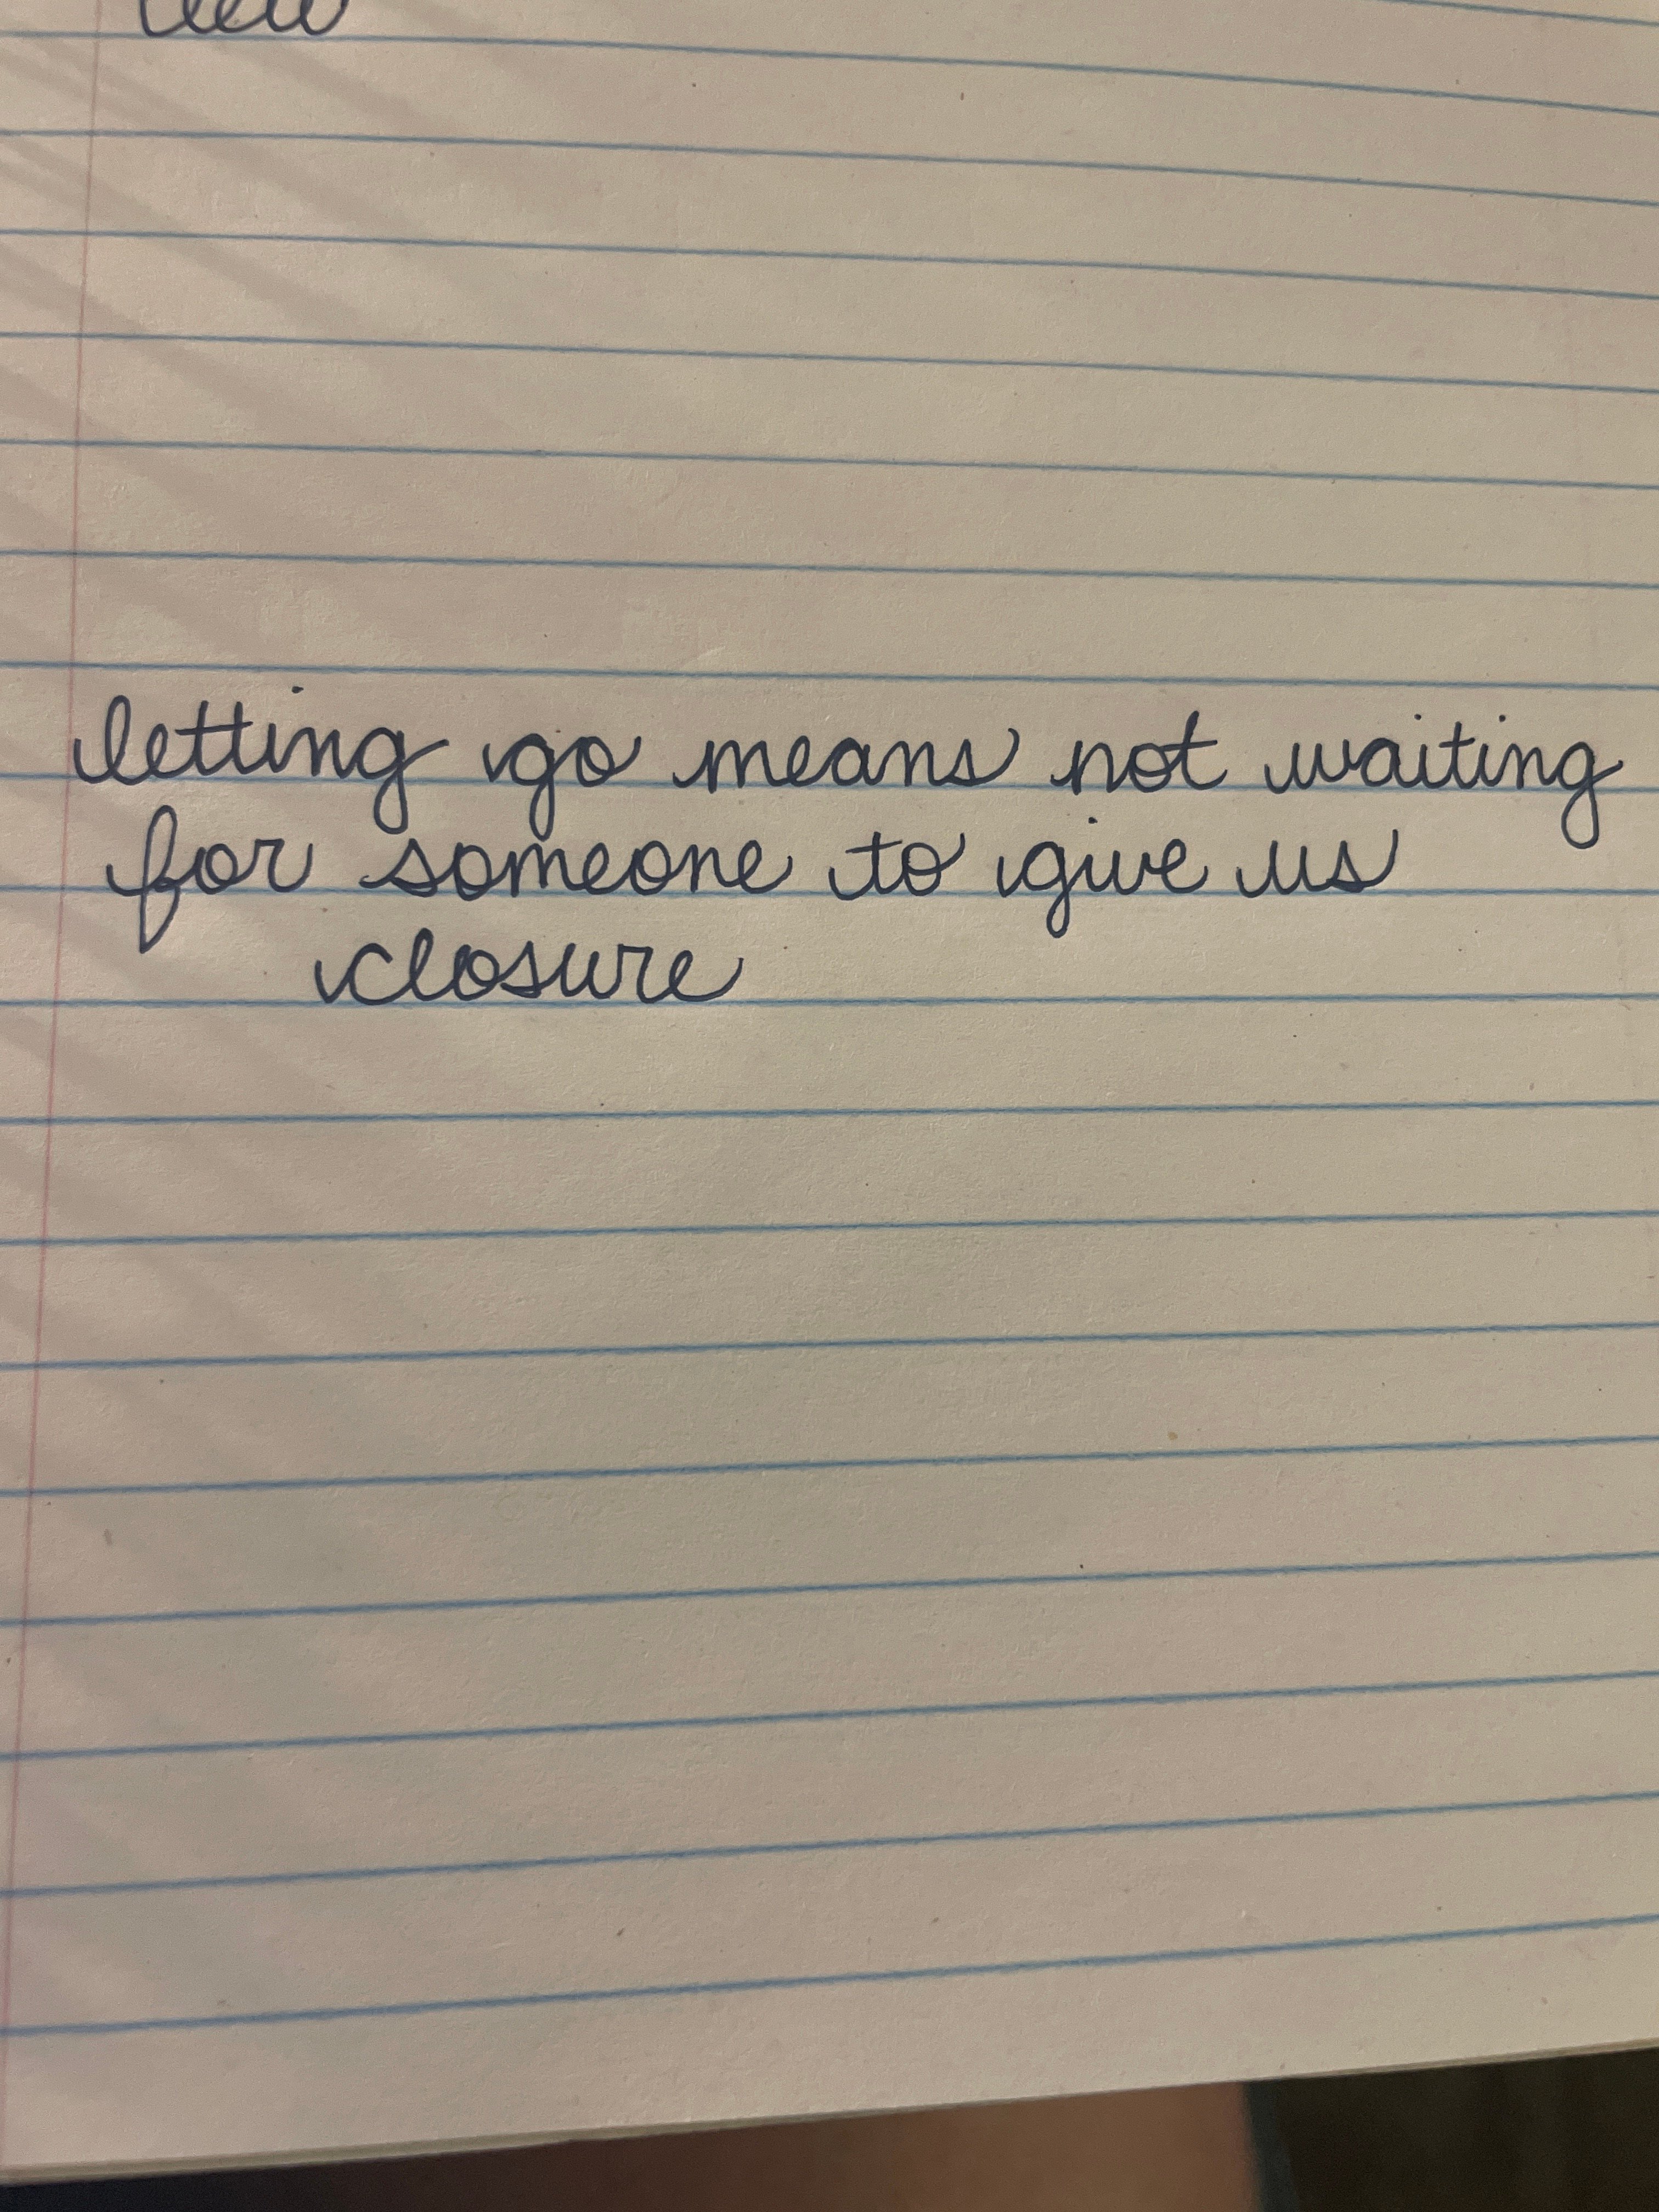 letting go means not waiting
for someone to give us
closure